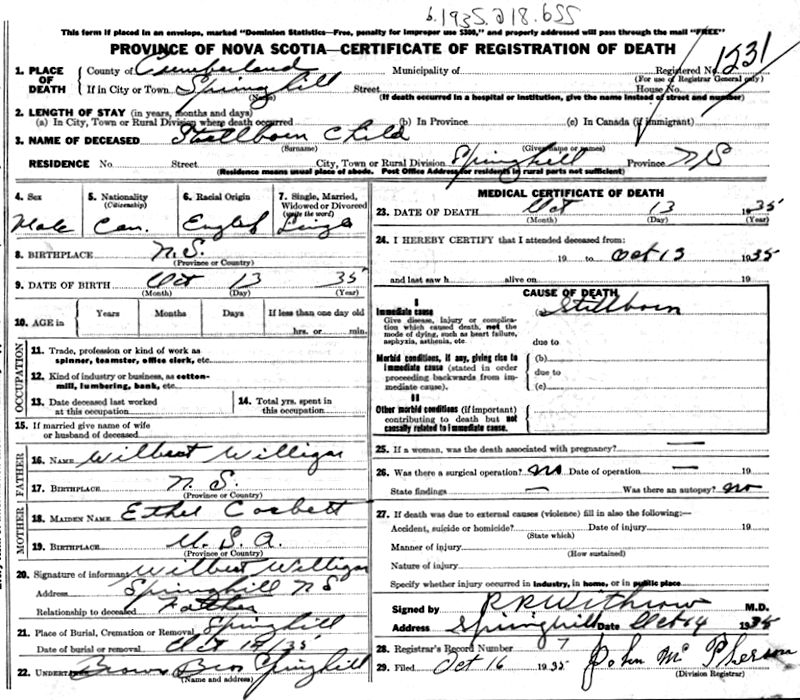 b. 1935.218.655
This form if placed in an envelope, marked "Dominion Statistics—Free, penalty for improper use $300," and properly addressed will pass through the mail "FREE"
PROVINCE OF NOVA SCOTIA—CERTIFICATE OF REGISTRATION OF DEATH
1. PLACE OF DEATH
County of Cumberland Municipality of Registered No. 1231
(For use of Registrar General only)
If in City or Town Springhill Street House No.
(Name) (If death occurred in a hospital or institution, give the name instead of street and number)
2. LENGTH OF STAY (in years, months and days)
(a) In City, Town or Rural Division where death occurred (b) In Province (c) In Canada (if immigrant)
3. NAME OF DECEASED Stillborn Child
(Surname) (Given name or names)
RESIDENCE No Street City, Town or Rural Division Springhill Province NS
(Residence means usual place of abode. Post Office Address for residents in rural parts not sufficient)
4. Sex
Male
5. Nationality
(Citizenship)
Can.
6. Racial Origin
English
7. Single, Married, Widowed or Divorced
(write the word)
Single
8. BIRTHPLACE N.S.
(Province or Country)
9. DATE OF BIRTH Oct 13 35
(Month) (Day) (Year)
10. AGE in Years Months Days If less than one day old
hrs. or min.
OCCUPATION
11. Trade, profession or kind of work as
spinner, teamster, office clerk, etc.
12. Kind of industry or business, as cotton-
mill, lumbering, bank, etc.
13. Date deceased last worked
at this occupation
14. Total yrs. spent in
this occupation
15. If married give name of wife
or husband of deceased
FATHER
16. NAME Wilbert Willigar
17. BIRTHPLACE N.S.
(Province or Country)
MOTHER
18. MAIDEN NAME Ethel Corbett
19. BIRTHPLACE U.S.A.
(Province or Country)
20. Signature of informant Wilbert Willigar
Address Springhill NS
Relationship to deceased Father
21. Place of Burial, Cremation or Removal Springhill
Date of burial or removal Oct 14/35
22. UNDERTAKER Brown Bros Springhill
(Name and address)
MEDICAL CERTIFICATE OF DEATH
23. DATE OF DEATH Oct 13 1935
(Month) (Day) (Year)
24. I HEREBY CERTIFY that I attended deceased from:
19 to Oct 13 1935
and last saw h alive on 19
CAUSE OF DEATH
I
Immediate cause (a) Stillborn
Give disease, injury or complica-
tion which caused death, not the
mode of dying, such as heart failure,
asphyxia, asthenia, etc. due to
Morbid conditions, if any, giving rise to (b)
immediate cause (stated in order due to
proceeding backwards from im-
mediate cause). (c)
II
Other morbid conditions (if important)
contributing to death but not
causally related to immediate cause.
25. If a woman, was the death associated with pregnancy? —
26. Was there a surgical operation? no Date of operation — 19
State findings — Was there an autopsy? no
27. If death was due to external causes (violence) fill in also the following:—
Accident, suicide or homicide? Date of injury 19
(State which)
Manner of injury
(How sustained)
Nature of injury
Specify whether injury occurred in industry, in home, or in public place
Signed by R R Withrow M.D.
Address Springhill Date Oct 14 1935
28. Registrar's Record Number 7
29. Filed Oct 16 1935 John McPherson
(Division Registrar)